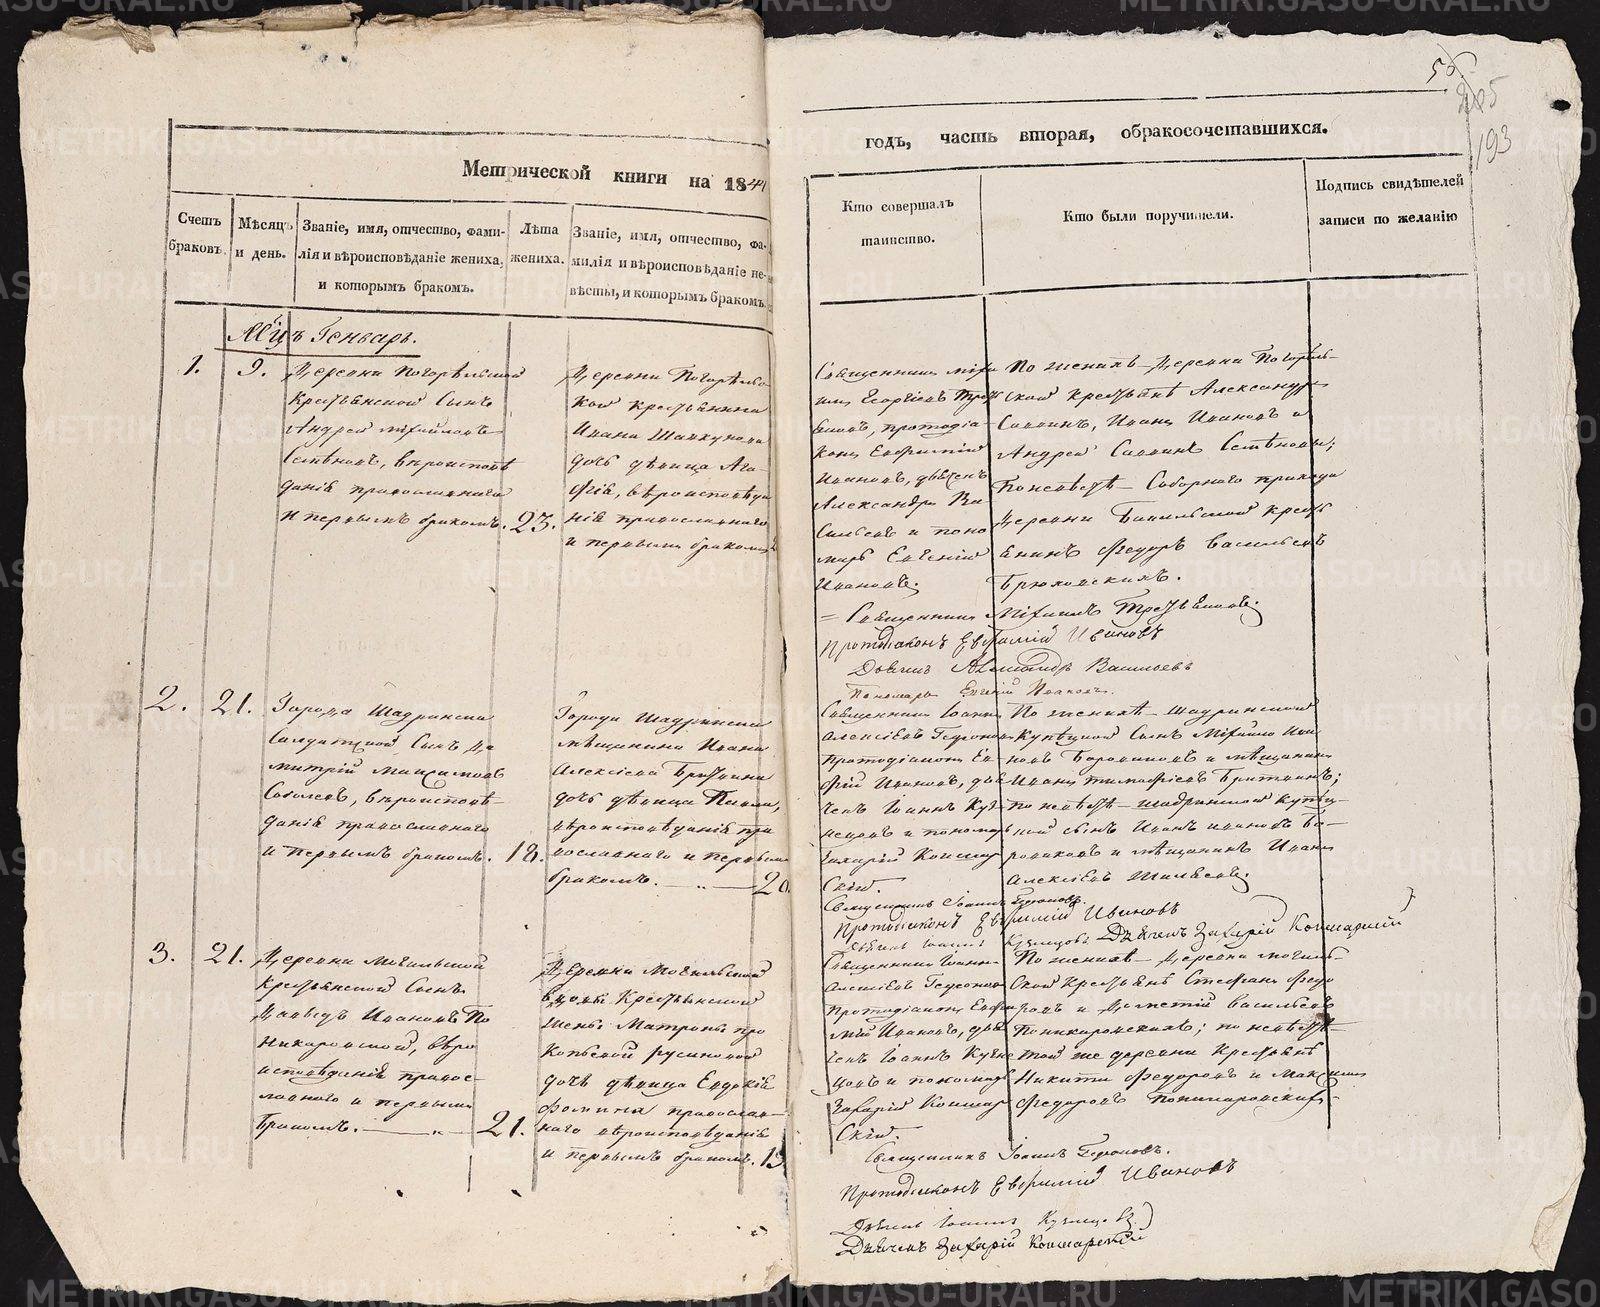 METRIKI.GASO-URAL.RU
56
205
193
Метрической книги на 1841
годъ, часть вторая, обракосочетавшихся.
Счетъ браковъ.
Мѣсяцъ и день.
Званіе, имя, отчество, фами-
лія и вѣроисповѣданіе жениха,
и которымъ бракомъ.
Лѣта жениха.
Званіе, имя, отчество, фа-
милія и вѣроисповѣданіе не-
вѣсты, и которымъ бракомъ.
Кто совершалъ
таинство.
Кто были поручители.
Подпись свидѣтелей
записи по желанію
Мцъ Генварь.
1.
9.
Деревни Погорѣльской
крестьянской сынъ
Андрей Михайловъ
вѣроисповѣ
данія православнаго
и первымъ бракомъ. 23.
Деревни Погорѣльс
кой крестьянина
Ивана
дочь дѣвица Ага-
фія, вѣроисповѣда
нія православнаго
и первымъ бракомъ
Священникъ Миха
илъ Георгіевъ
протодіа-
конъ Евфимій
Ивановъ, дьячекъ
Александръ Ва
сильевъ и поно
марь Евгеній
Ивановъ.
По женихѣ – деревни Погорѣль-
ской крестьянѣ Александръ
Саввинъ, Иванъ Ивановъ и
Андрей Саввинъ
По невѣстѣ – Соборнаго прихода
деревни крест
янинъ Федоръ Васильевъ
Брюховскихъ.
= Священникъ Михаилъ
Протодіаконъ Евфимій Ивановъ
Дьячекъ Александръ Васильевъ
Пономарь Евгеній Ивановъ.
2.
21.
Города Шадринска
солдатской сынъ Ди
митрій Максимовъ
Соболевъ, вѣроисповѣ-
данія православнаго
и первымъ бракомъ. 18.
Города Шадринска
мѣщанина Ивана
Алексѣева
дочь дѣвица
вѣроисповѣданія пра
вославнаго и первымъ
бракомъ. 20.
Священникъ Іоаннъ
Алексѣевъ
протодіаконъ Ев-
фимій Ивановъ, дья-
чекъ Іоаннъ Куз-
нецовъ и пономарь
Захарій Кошмар
скій.
По женихѣ – Шадринской
купецкой сынъ Михайло Ива
новъ и мѣщанинъ
Иванъ Тимофѣевъ
по невѣстѣ – Шадринской купец-
кой сынъ Иванъ Ивановъ
и мѣщанинъ Иванъ
Алексѣевъ
Священникъ Іоаннъ
Протодіаконъ Евфимій Ивановъ
Дьячекъ Іоаннъ Кузнецовъ Дьячекъ Захарій Кошмарскій
3.
21.
Деревни Могильской
крестьянской сынъ
Давыдъ Ивановъ По
никаровской, вѣро
исповѣданія правос-
лавнаго и первымъ
бракомъ. 21.
Деревни Могильской
вдовы крестьянской
жены Матроны про
копьевой русиновой
дочь дѣвица Евдокія
Фомина православ-
наго вѣроисповѣданія
и первымъ бракомъ. 19
Священникъ Іоаннъ
Алексѣевъ
протодіаконъ Евфи-
мій Ивановъ, дья
чекъ Іоаннъ Кузне
цовъ и пономарь
Захарій Кошмар
скій.
По женихѣ – деревни Могиль-
ской крестьянѣ Стефанъ Федо
ровъ и Дометій Васильевъ
Поникаровскихъ; по невѣстѣ –
той же деревни крестьянѣ
Никита Федоровъ и Максимъ
Федоровъ Поникаровскихъ
Священникъ Іоаннъ
Протодіаконъ Евфимій Ивановъ
Дьячекъ Іоаннъ Кузнецовъ
Дьячекъ Захарій Кошмарскій